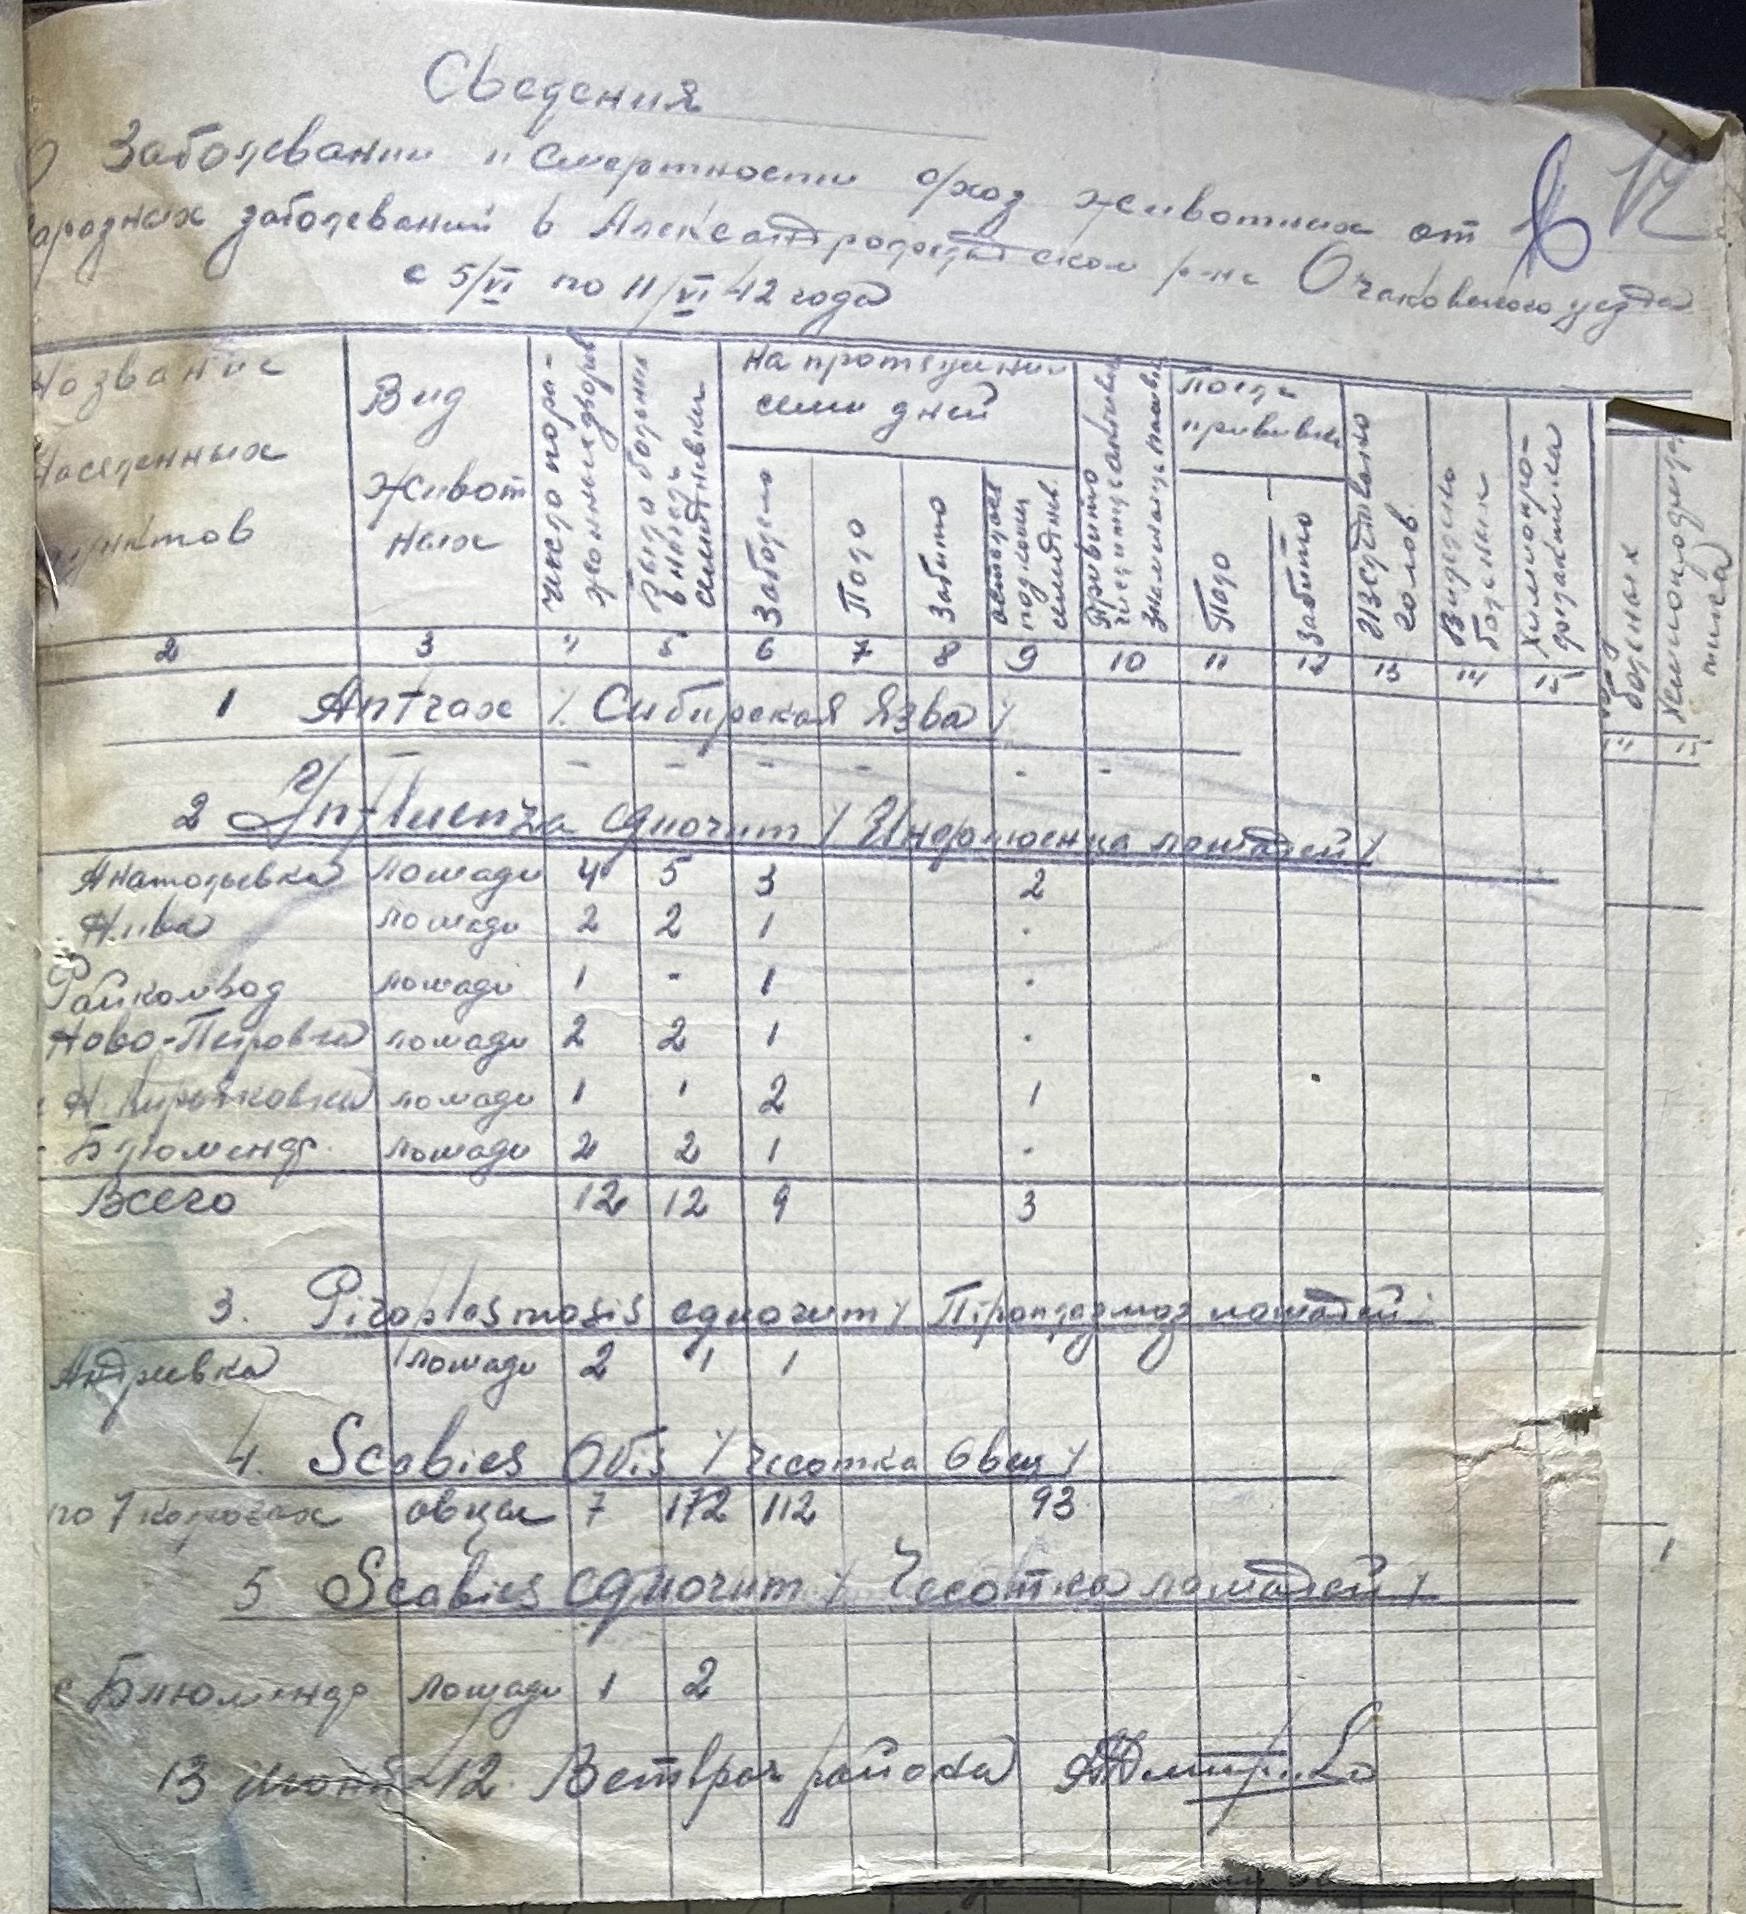 Сведения
О Заболевании и смертности отход животных от
заразных заболеваний в Александродарском р-не Очаковского уезда
с 5/VI по 11/VI 42 года
Название населенных пунктов | Вид животных | Число пораженных дворов | Было больных в начале семидневки | На протяжении семи дней | Привито | После прививки | Исследовано голов | Выделено больных | Химиопрофилактика
Заболело | Пало | Забито | Осталось под конец семиднев. | Пало | Забито
2 3 4 5 6 7 8 9 10 11 12 13 14 15
1 Antrax /. Сибирская Язва /
- - - - - - -
2 Influenza equorum / Инфлюенца лошадей /
Анатольевка лошади 4 5 3 2
Нива лошади 2 2 1 -
Райкомвод лошади 1 - 1 -
Ново-Петровка лошади 2 2 1 -
Н. Кирьяковка лошади 1 1 2 1
Блюмендр. лошади 2 2 1 -
Всего 12 12 9 3
3. Piroplasmosis equorum / Пироплазмоз лошадей /
Андреевка лошади 2 1 1
4. Scabies Obis / чесотка Овец /
по 7 колхозах овцы 7 172 112 93
5 Scabies equorum / Чесотка лошадей /
с Блюмендр лошади 1 2
13 июня 42. Ветврач района